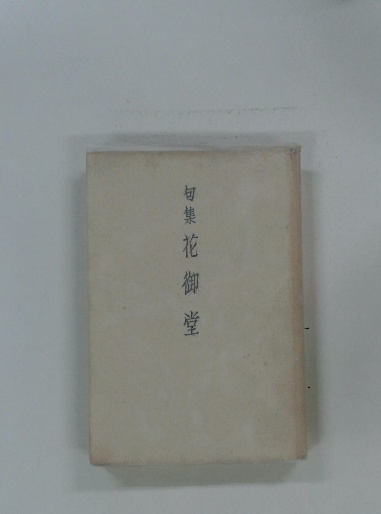 句集 花御堂